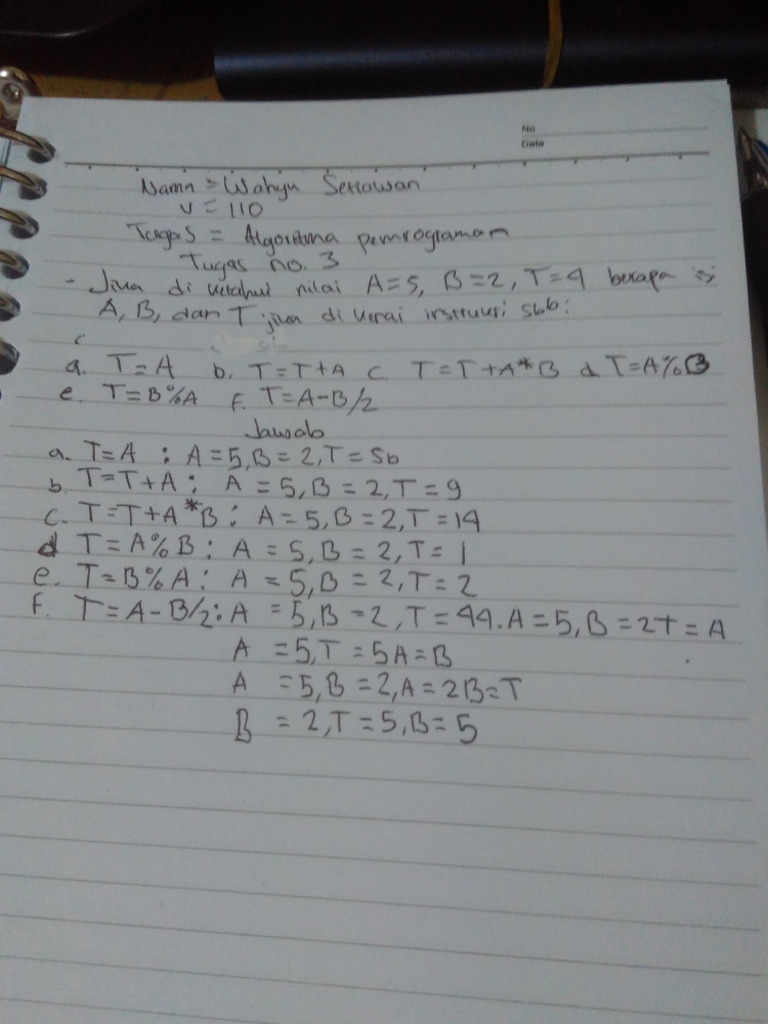 No
Date
Nama = Wahyu Setiawan
V = 110
Tugas = Algoritma pemrograman
Tugas no. 3
- Jika di ketahui nilai A=5, B=2, T=4 berapa isi
A, B, dan T jika di kenai instruksi sbb:
a. T=A b. T=T+A c. T=T+A*B d. T=A%B
e. T=B%A f. T=A-B/2
Jawab
a. T=A : A=5, B=2, T=5b
b. T=T+A : A=5, B=2, T=9
c. T=T+A*B : A=5, B=2, T=14
d T=A%B : A=5, B=2, T=1
e. T=B%A : A=5, B=2, T=2
f. T=A-B/2 : A=5, B=2, T=44. A=5, B=2T=A
A =5, T=5A=B
A =5, B=2, A=2B=T
B =2, T=5, B=5